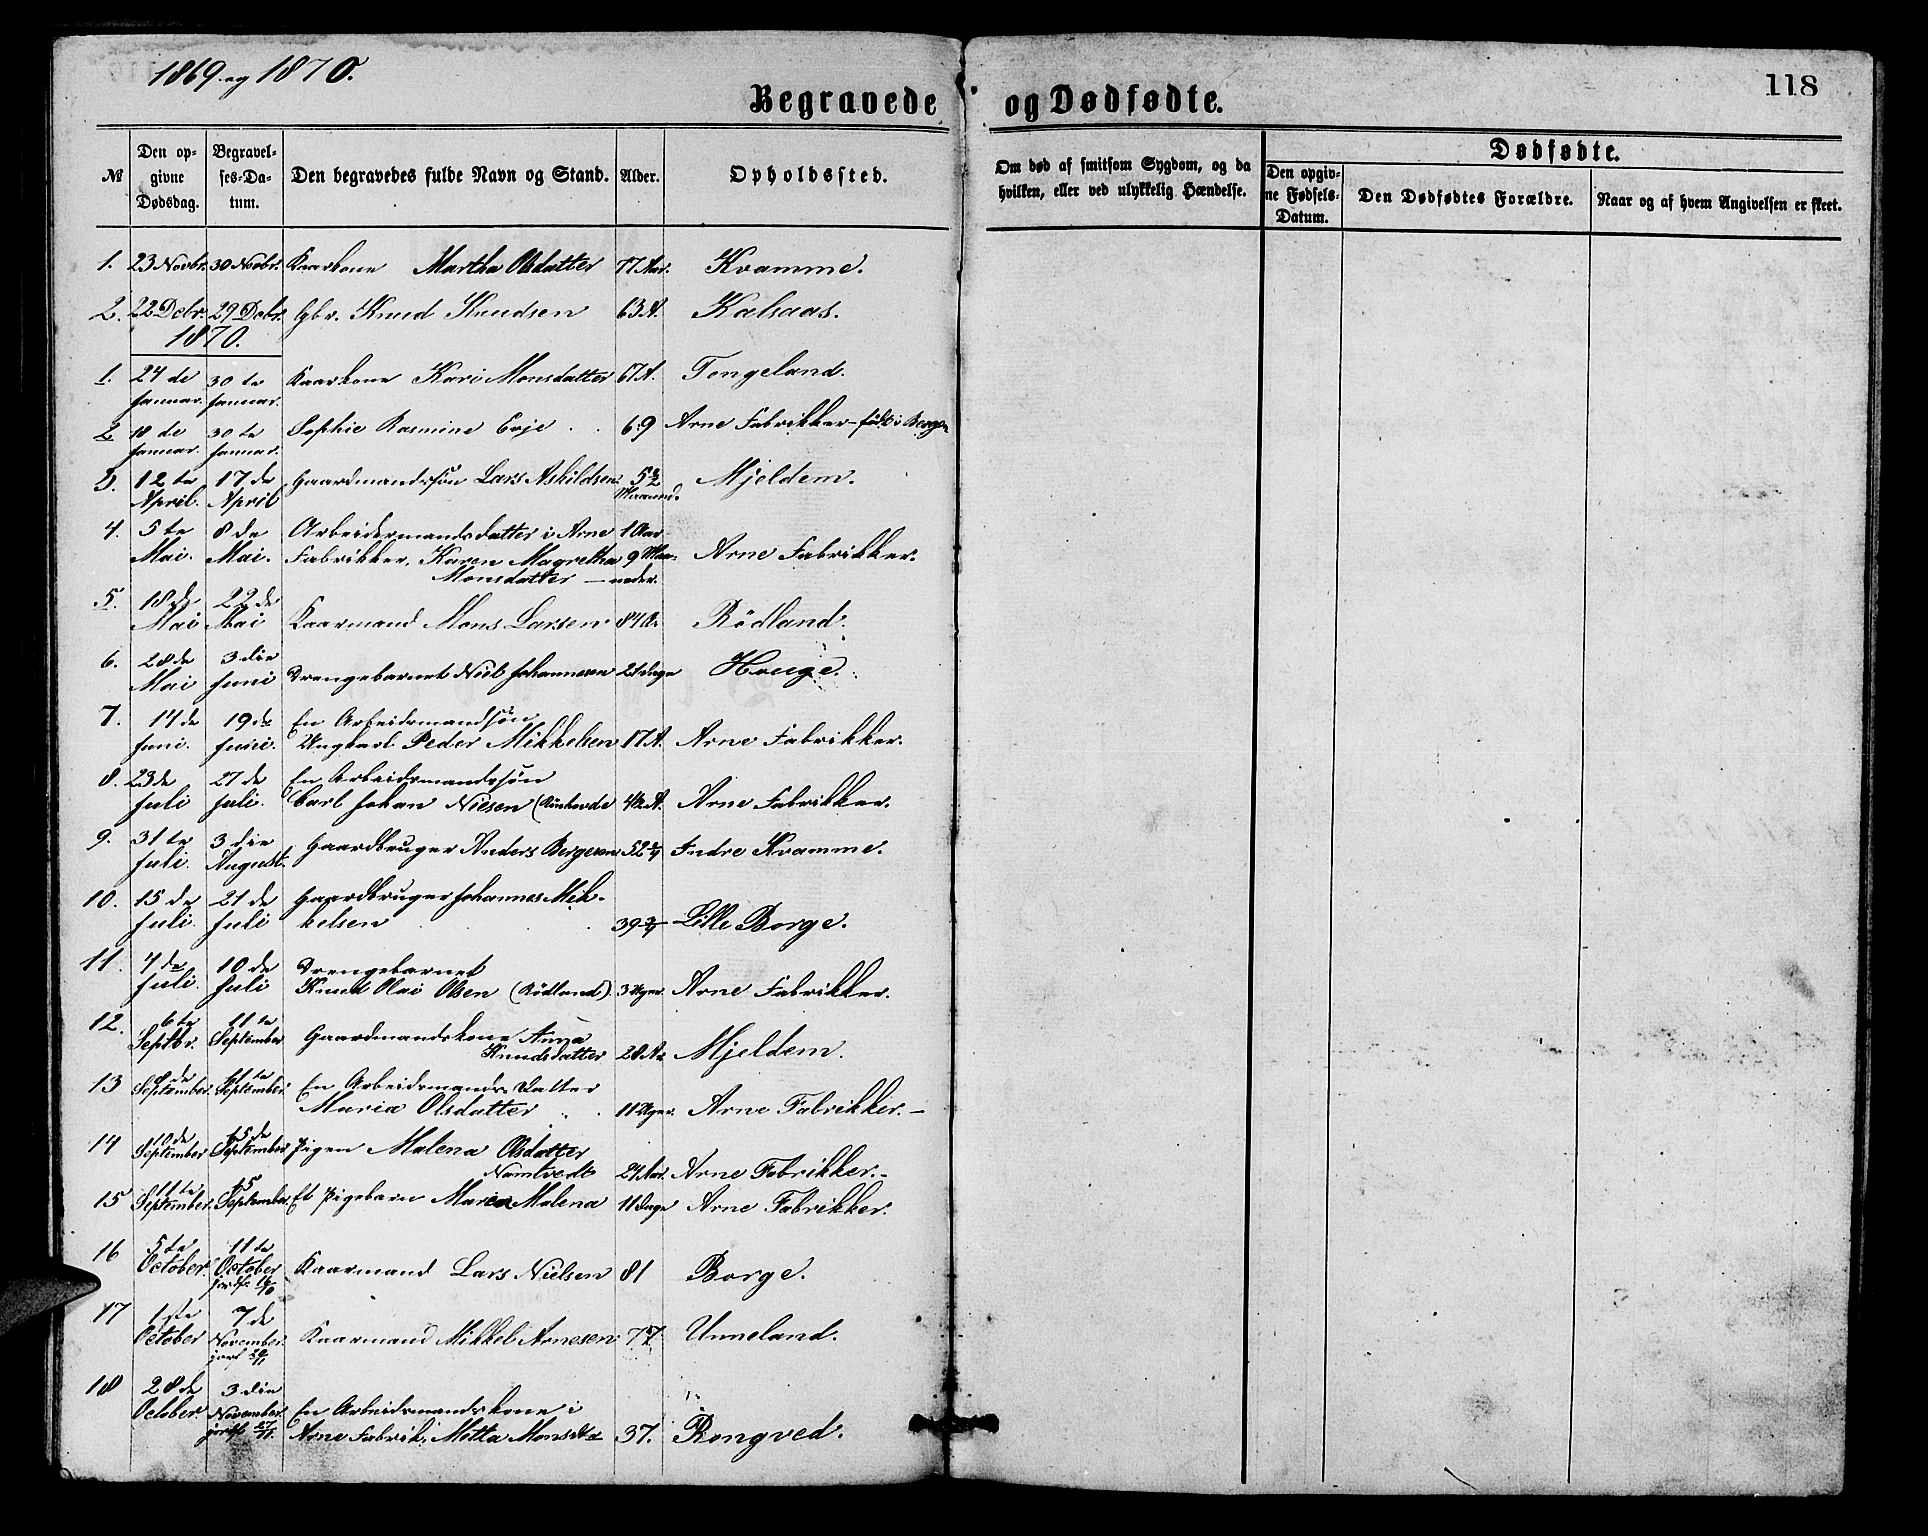 1869 og 1870.
118
Begravede og Dødfødte.
Dødfødte.
№ Den opgivne Dødsdag. Begravelses-Datum. Den begravedes fulde Navn og Stand. Alder. Opholdssted. Om død af smitsom Sygdom, og da hvilken, eller ved ulykkelig Hændelse. Den opgivne Fødsels-Datum. Den Dødfødtes Forældre. Naar og af hvem Angivelsen er skeet.
1. 23 Novbr. 30 Novbr. Kaarkone Martha Olsdatter 77 Aar. Kvamme.
2. 22 Dcbr. 29 Dcbr. Gbr. Knud Knudsen 63 A. Kalsaas.
1870.
1. 24de Januar. 30te Januar. Kaarkone Kari Monsdatter 67 A. Tongeland.
2. 18de Januar. 30te Januar. Sophie Rasmine Evje 69 Arne Fabrikker - født i Bergen
3. 12te April. 17de April Gaardmandssøn Lars Askildsen Maaned. Mjeldem.
4. 5te Mai. 8de Mai. Arbeidermandsdatter i Arne 1 Aar
Fabrikker, Karen Magretha 9 Maa- Arne Fabrikker.
Monsdatter — neder.
5. 18de Mai 22de Mai Kaarmand Mons Larsen 84 A. Rödland.
6. 28de Mai 3die Juni Drengebarnet Niels Johannesen 21 Dage Houge.
7. 14de Juni. 19de Juni. En Arbeidsmandssøn
Ungkarl Peder Mikkelsen 17 A. Arne Fabrikker.
8. 23de Juli 27de Juli. En Arbeidsmandssøn
Carl Johan Nielsen 4 A. Arne Fabrikker.
9. 31te Juli. 3die August. Gaardbruger Anders Bergesen 52 Indre Kvamme.
10. 15de Juli. 21de Juli Gaardbruger Johannes Mik-
kelsen 39 Lille Borge.
11. 7de Juli. 10de Juli Drengebarnet
Knud Olai Olsen (Rödland). 3 Uger. Arne Fabrikker.
12. 6te Septbr. 11te September Gaardmandskone Anna
Knudsdatter 28 A. Mjeldem.
13 September. 11te September. En Arbeidsmands Datter
Maria Olsdatter 11 Uger. Arne Fabrikker. —
14 10de September 15de September Pigen Malena Olsdatter
Namtvedt 24 Aar. Arne Fabrikker. -
15 11te September. 15 September. Et Pigebarn Maria Malena 11 Dage Arne Fabrikker.
16 5te October. 11te October Kaarmand Lars Nielsen 81 Borge.
17 1ste October 7de November. Kaarmand Mikkel Arnesen 77 Unneland.
18 28de October. 3die November. En Arbeidsmandskone i
Arne Fabrik, Metta Monsdtr 37. Rongved.